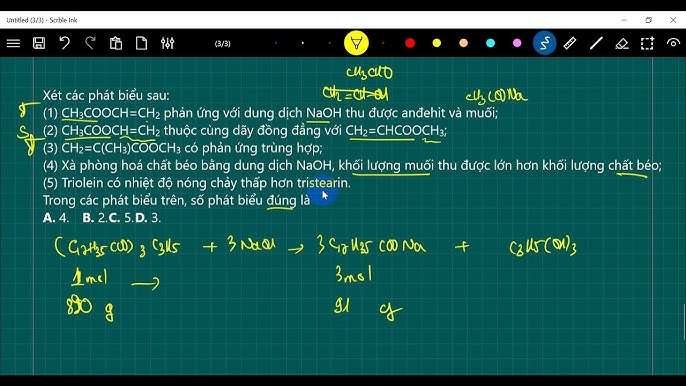 Untitled (3/3) - Scrble Ink
(3/3)
CH3CHO
CH2=CH-OH
CH3COONa
Xét các phát biểu sau:
(1) CH3COOCH=CH2 phản ứng với dung dịch NaOH thu được anđehit và muối;
(2) CH3COOCH=CH2 thuộc cùng dãy đồng đẳng với CH2=CHCOOCH3;
(3) CH2=C(CH3)COOCH3 có phản ứng trùng hợp;
(4) Xà phòng hoá chất béo bằng dung dịch NaOH, khối lượng muối thu được lớn hơn khối lượng chất béo;
(5) Triolein có nhiệt độ nóng chảy thấp hơn tristearin.
Trong các phát biểu trên, số phát biểu đúng là
A. 4. B. 2.C. 5.D. 3.
(C17H35COO)3C3H5 + 3NaOH → 3C17H35COONa + C3H5(OH)3
1mol → 3mol
890 g 91 g